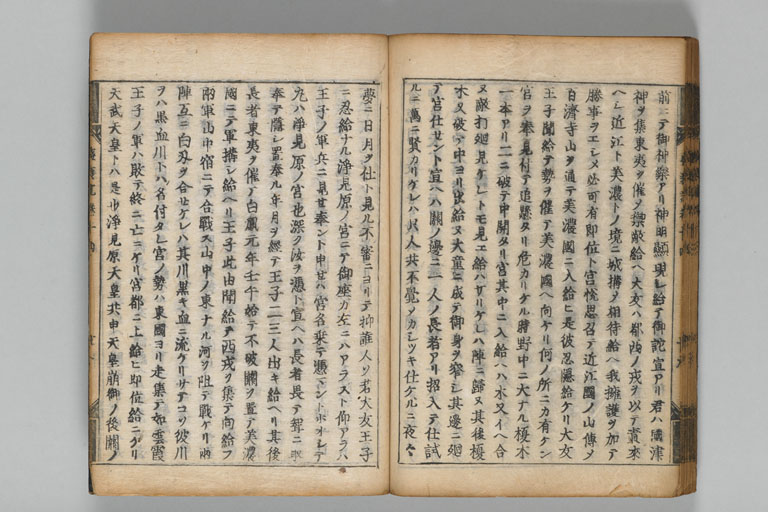 前ニテ御神樂アリ神明顯現レ給テ御詫宣アリ君ハ國津
神ヲ集東夷ヲ催メ禦敵給ヘ大友ハ都西ノ戎ヲ以テ責來
ヘシ近江ト美濃トノ境ニ城搆ヲ相待給ヘ我擁護ヲ加テ
勝事ヲエシメ必可有即位ト宮悦思召テ近江國ノ山傳ヲ
百濟寺山ヲ通テ美濃國ニ入給ヒヒ是彼忍隱給ケリ大友
王子聞給テ勢ヲ催テ美濃國ヘ向ケリ何ノ所ニカ有ケン
宮ヲ奉見付テ追懸タリ危カリケル時野中ニ大ナル榎木
一本アリ二ニ破テ中開タリ宮其中ニ入給ヘハ木又イヘ合
ヌ敵打廻見ケレトモ見エ給ハサリケレハ陣ニ歸ヌ其後榎
木又破テ中ヨリ出給ヌ大童ニ成テ御身ヲ窄シ其邊ニ廻
テ宮仕セント宣ヘハ關ノ邊ニ一人ノ長者アリ招入テ仕試
ルニ萬ニ賢カリケレハ此人共不覺メカレツキ仕ケルニ夜々
夢ニ日月ヲ仕ト見ル不審ニヨリテ抑誰人ソ君大友王子
ニ忍給ナル淨見原ノ宮ニテ御座カ左ニハアラスト仰アラハ
王子ノ軍兵ニ見セ奉ント申セハ宮名乗テ憑マントオホシテ
九ハ淨見原ノ宮也深ク汝ヲ憑ト宣ヘハ長者畏テ聟ニ取
奉テ隱シ置奉ル年月ヲ經テ王子二三人出キ給ヘリ其後
長者東夷ヲ催テ白鳳元年壬午始テ不破關ヲ置テ美濃
國ニテ軍搆シ給ヘリ王子此由聞給テ西戎ヲ集テ向給フ
兩軍山中宿ニテ合戰ス山中ノ東ナル河ヲ阻テ戰ケリ兩
陣互ニ白刃ヲ合セケレハ其川黒キ血ニ流ケリサテコソ彼川
ヲハ黒血川トハ名付タレ宮ノ勢ハ東國ヨリ走集テ如雲霞
王子ノ軍ハ敗テ終ニ亡ニケリ宮都ニ上給ヒ即位給ニケリ
天武天皇トハ是也淨見原天皇共申天皇崩御ノ後關ノ